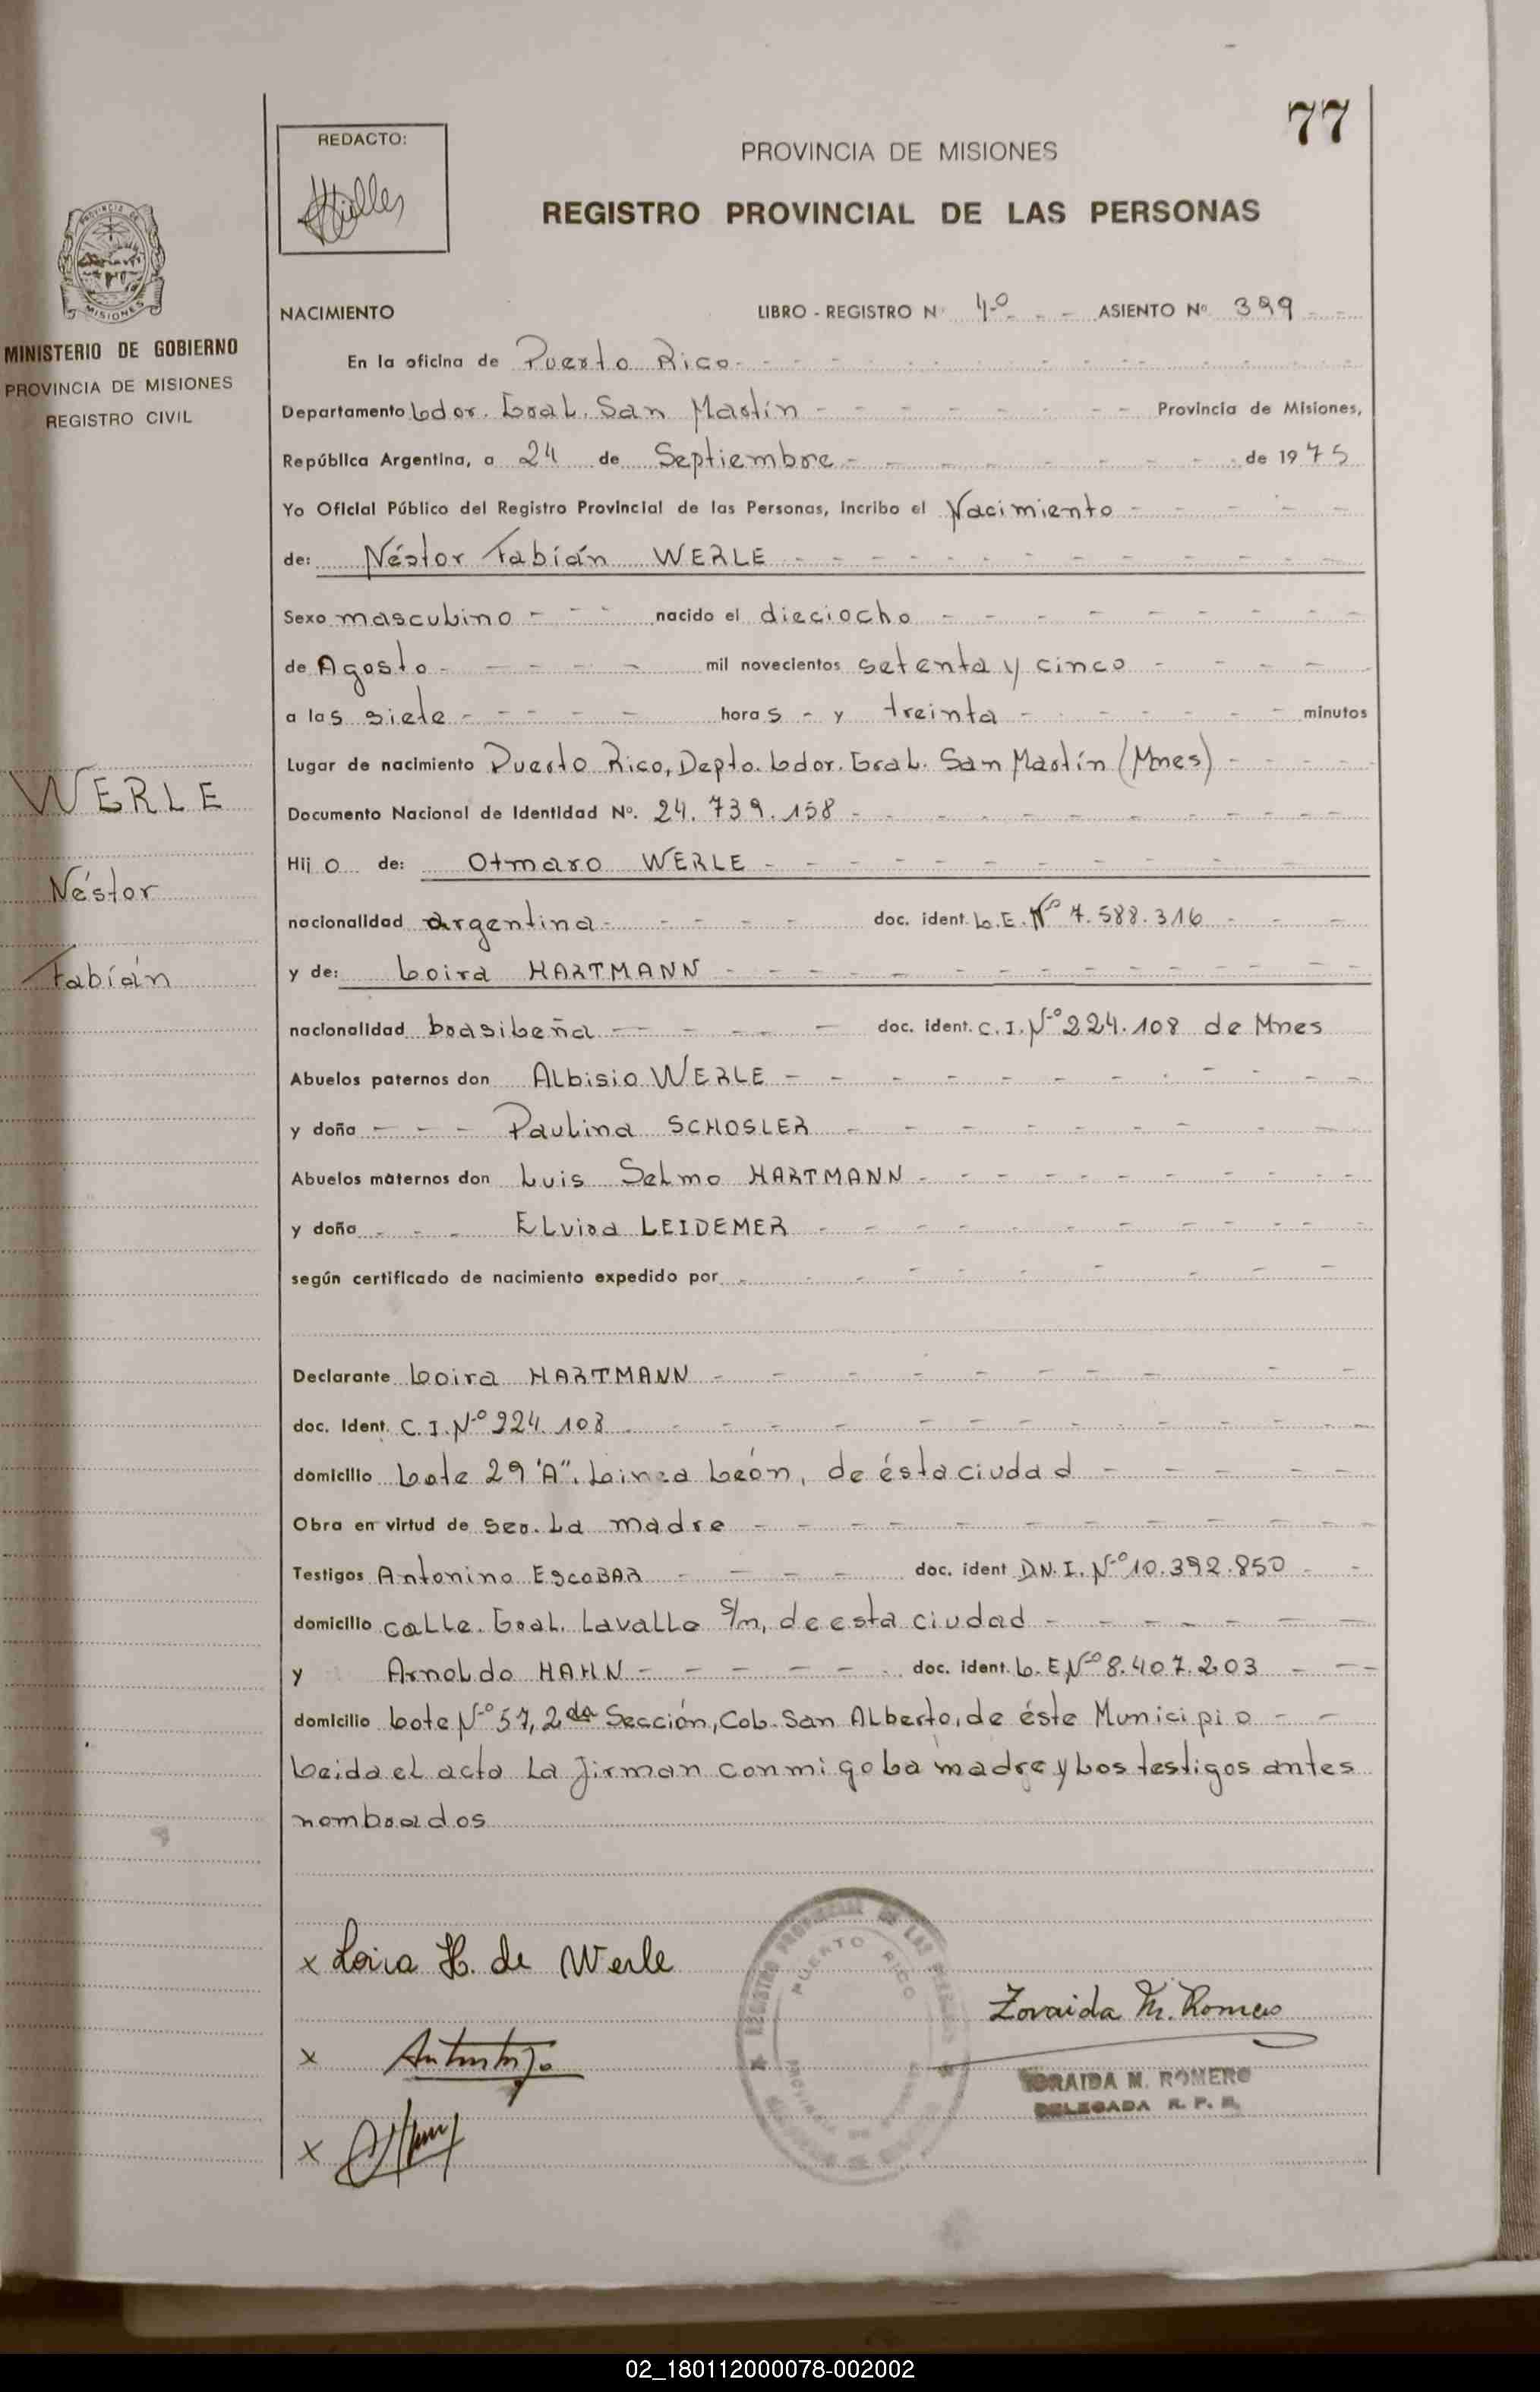 77
REDACTO:
PROVINCIA DE MISIONES
REGISTRO PROVINCIAL DE LAS PERSONAS
PROVINCIA DE
MISIONES
MINISTERIO DE GOBIERNO
PROVINCIA DE MISIONES
REGISTRO CIVIL
WERLE
Néstor
Fabián
NACIMIENTO LIBRO - REGISTRO Nº 4º - - - ASIENTO Nº 399 - -
En la oficina de Puerto Rico
Departamento Ldor. Gral. San Martín - Provincia de Misiones,
República Argentina, a 24 de Septiembre - de 1975
Yo Oficial Público del Registro Provincial de las Personas, incribo el Nacimiento
de: Néstor Fabián WERLE
Sexo masculino - nacido el dieciocho
de Agosto - mil novecientos setenta y cinco
a las siete - horas - y treinta - minutos
Lugar de nacimiento Puerto Rico, Depto. Ldor. Gral. San Martín (Mnes)
Documento Nacional de Identidad Nº. 24.739.158
Hijo de: Otmaro WERLE
nacionalidad argentina - doc. ident. L.E. Nº 7.588.316
y de: Loira HARTMANN
nacionalidad brasileña - doc. ident. C.I. Nº 224.108 de Mnes
Abuelos paternos don Albisio WERLE
y doña - - - Paulina SCHOSLER
Abuelos maternos don Luis Selmo HARTMANN
y doña - - - Elvira LEIDEMER
según certificado de nacimiento expedido por
Declarante Loira HARTMANN
doc. Ident. C.I. Nº 224.108
domicilio Lote 29 "A". Linea León, de ésta ciudad
Obra en virtud de ser. La madre
Testigos Antonino ESCOBAR - doc. ident D.N.I. Nº 10.392.850
domicilio calle. Gral. Lavalle s/n, de esta ciudad
y Arnoldo HAHN - doc. ident. L.E. Nº 8.407.203
domicilio Lote Nº 57, 2da Sección, Col. San Alberto, de éste Municipio
Leida el acta la firman conmigo la madre y los testigos antes
nombrados
x Loira H. de Werle
x
x
REGISTRO PROVINCIAL DE LAS PERSONAS
PUERTO RICO
PROVINCIA DE MISIONES
Zoraida M. Romero
ZORAIDA M. ROMERO
DELEGADA R. P. P.
02_180112000078-002002